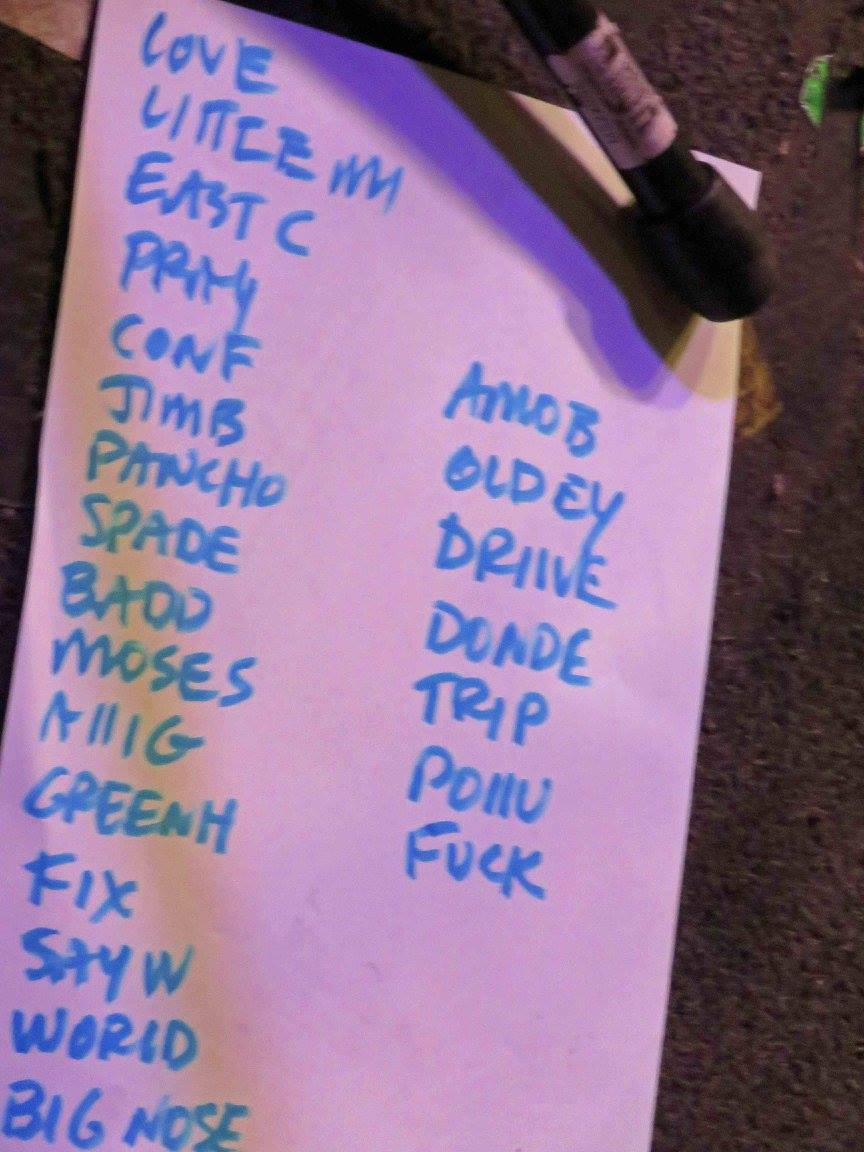 LOVE
LITTLE MM
EAST C
PRMY
CONF
JIMB
PANCHO
SPADE
BADD
MOSES
AIIIG
GREENH
FIX
SAY W
WORLD
BIG NOSE
AMOB
OLD EY
DRIIVE
DONDE
TRIP
POIIU
FUCK